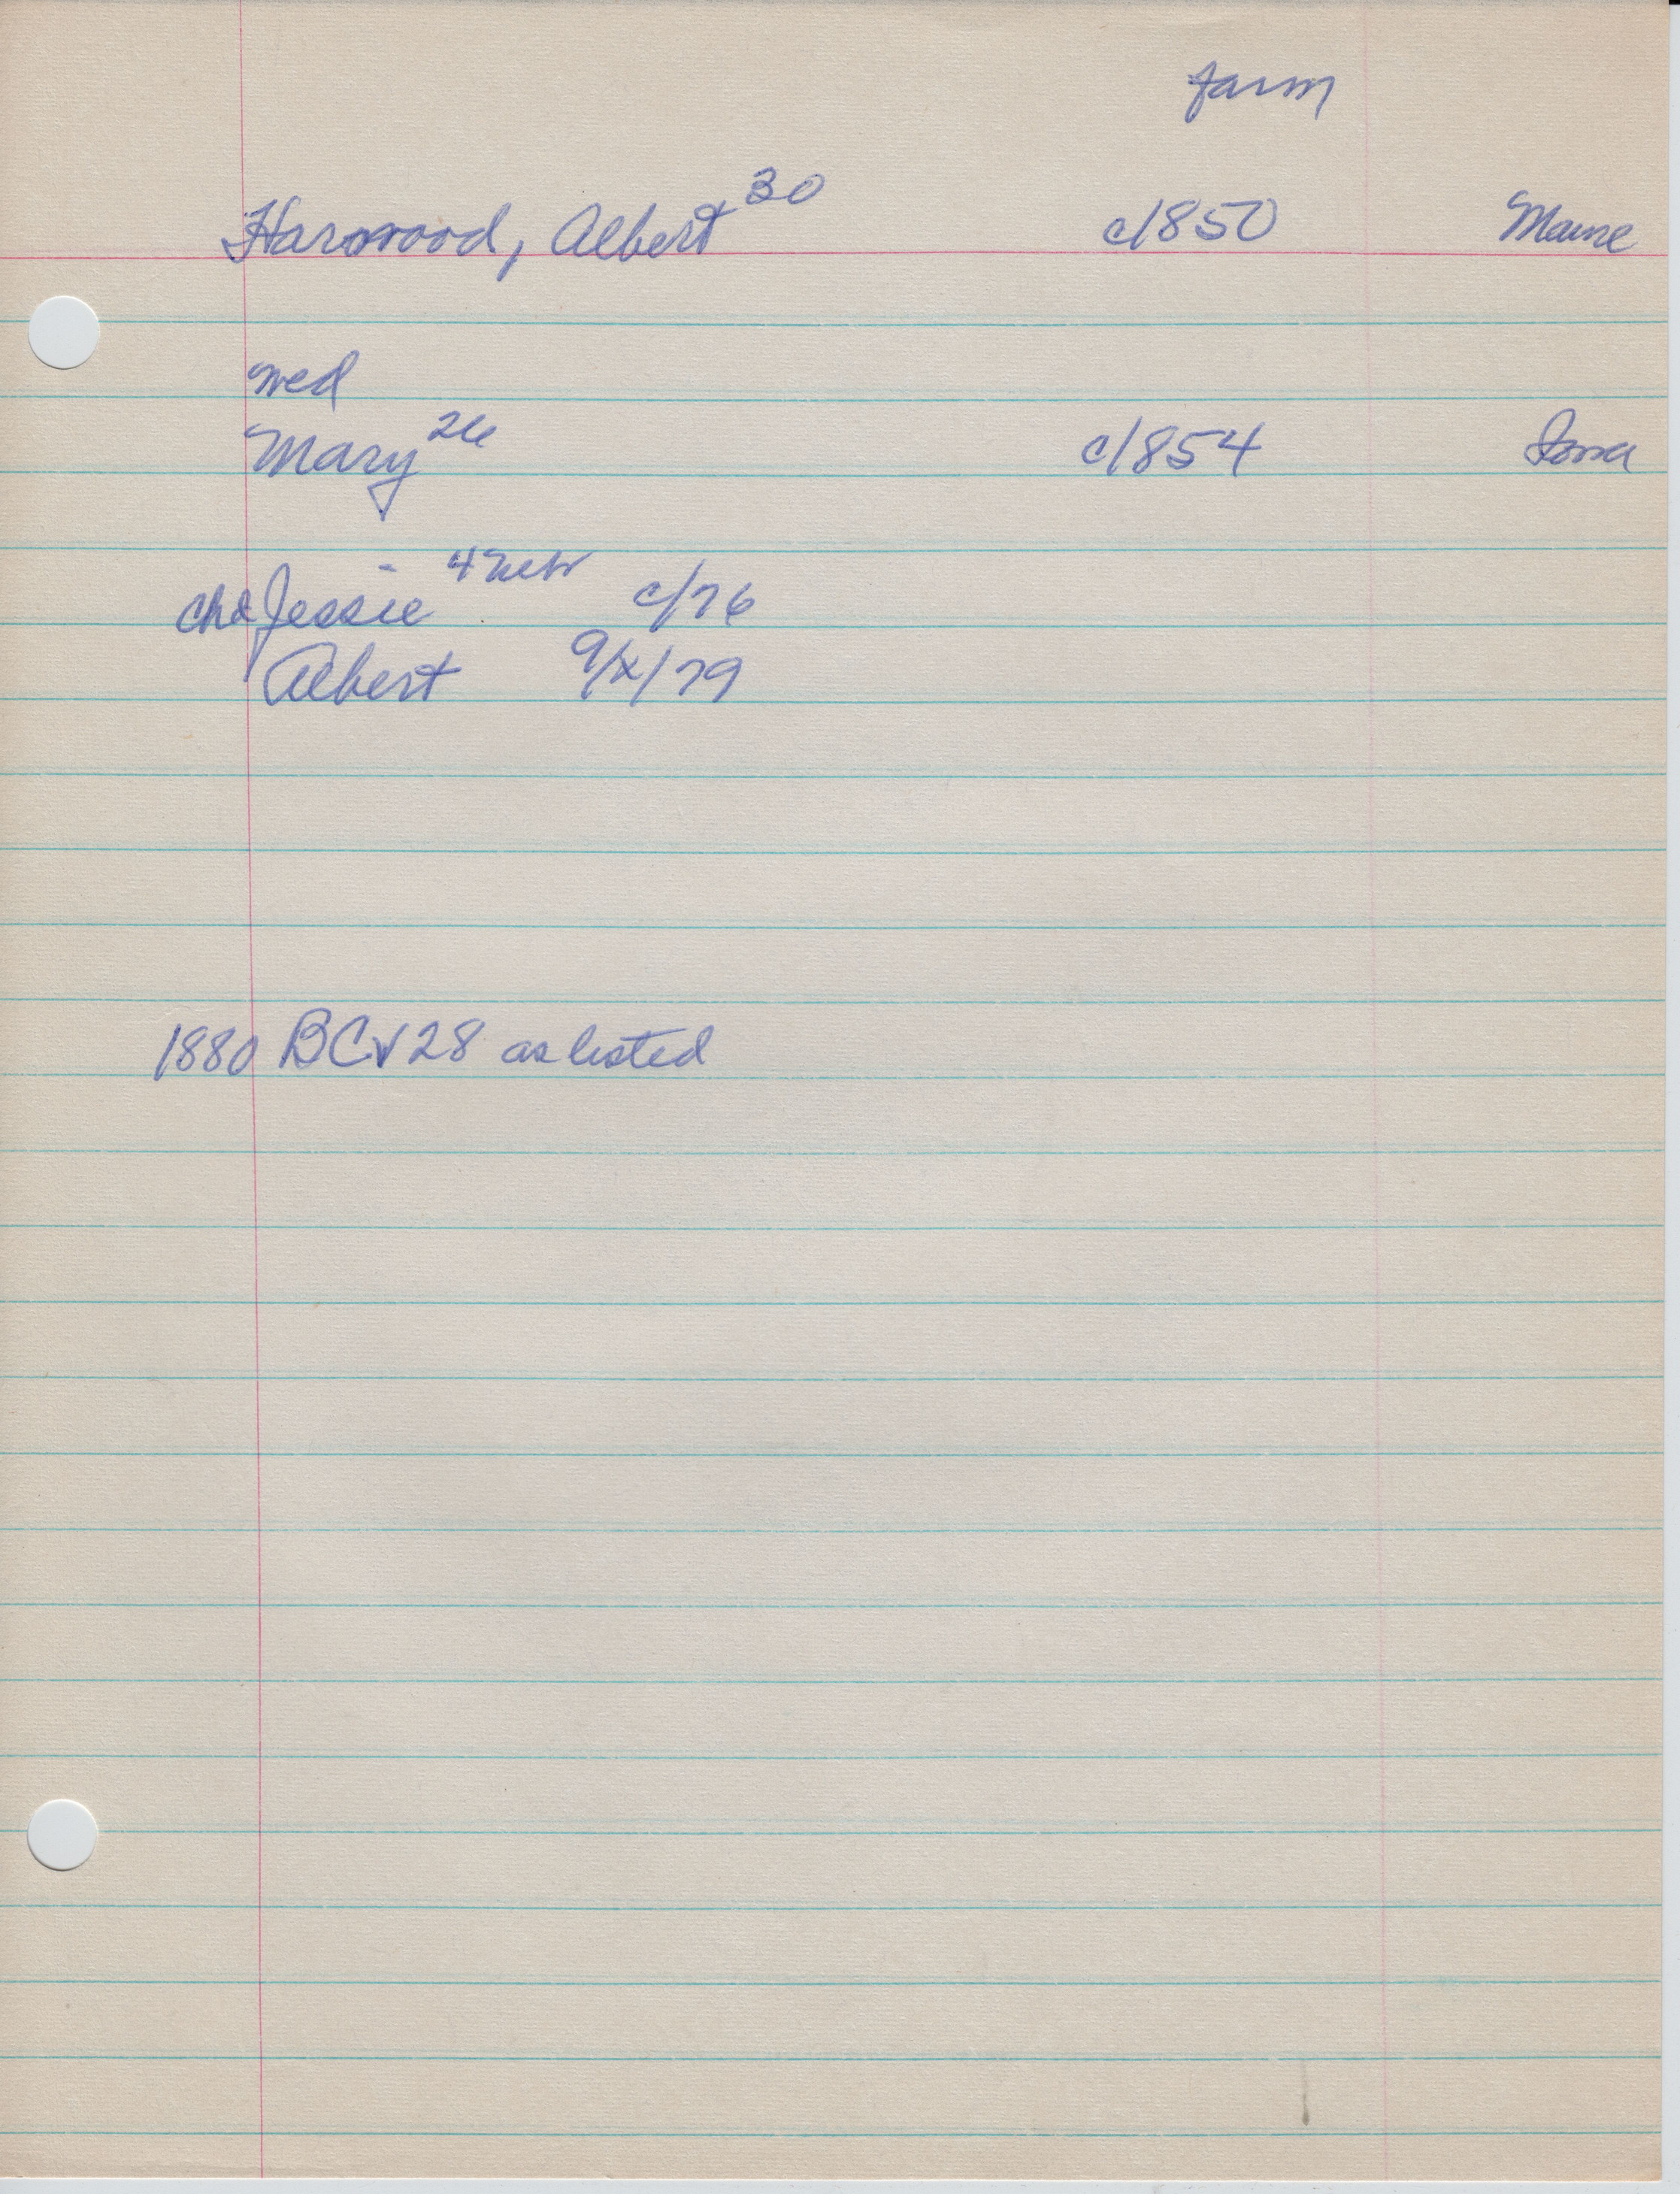 farm
Harwood, Albert 30 c/1850 Maine
wed
Mary 26 c/1854 Iowa
chd Jessie 4 c/76
Albert 9/x/79
1880 BCV28 as listed